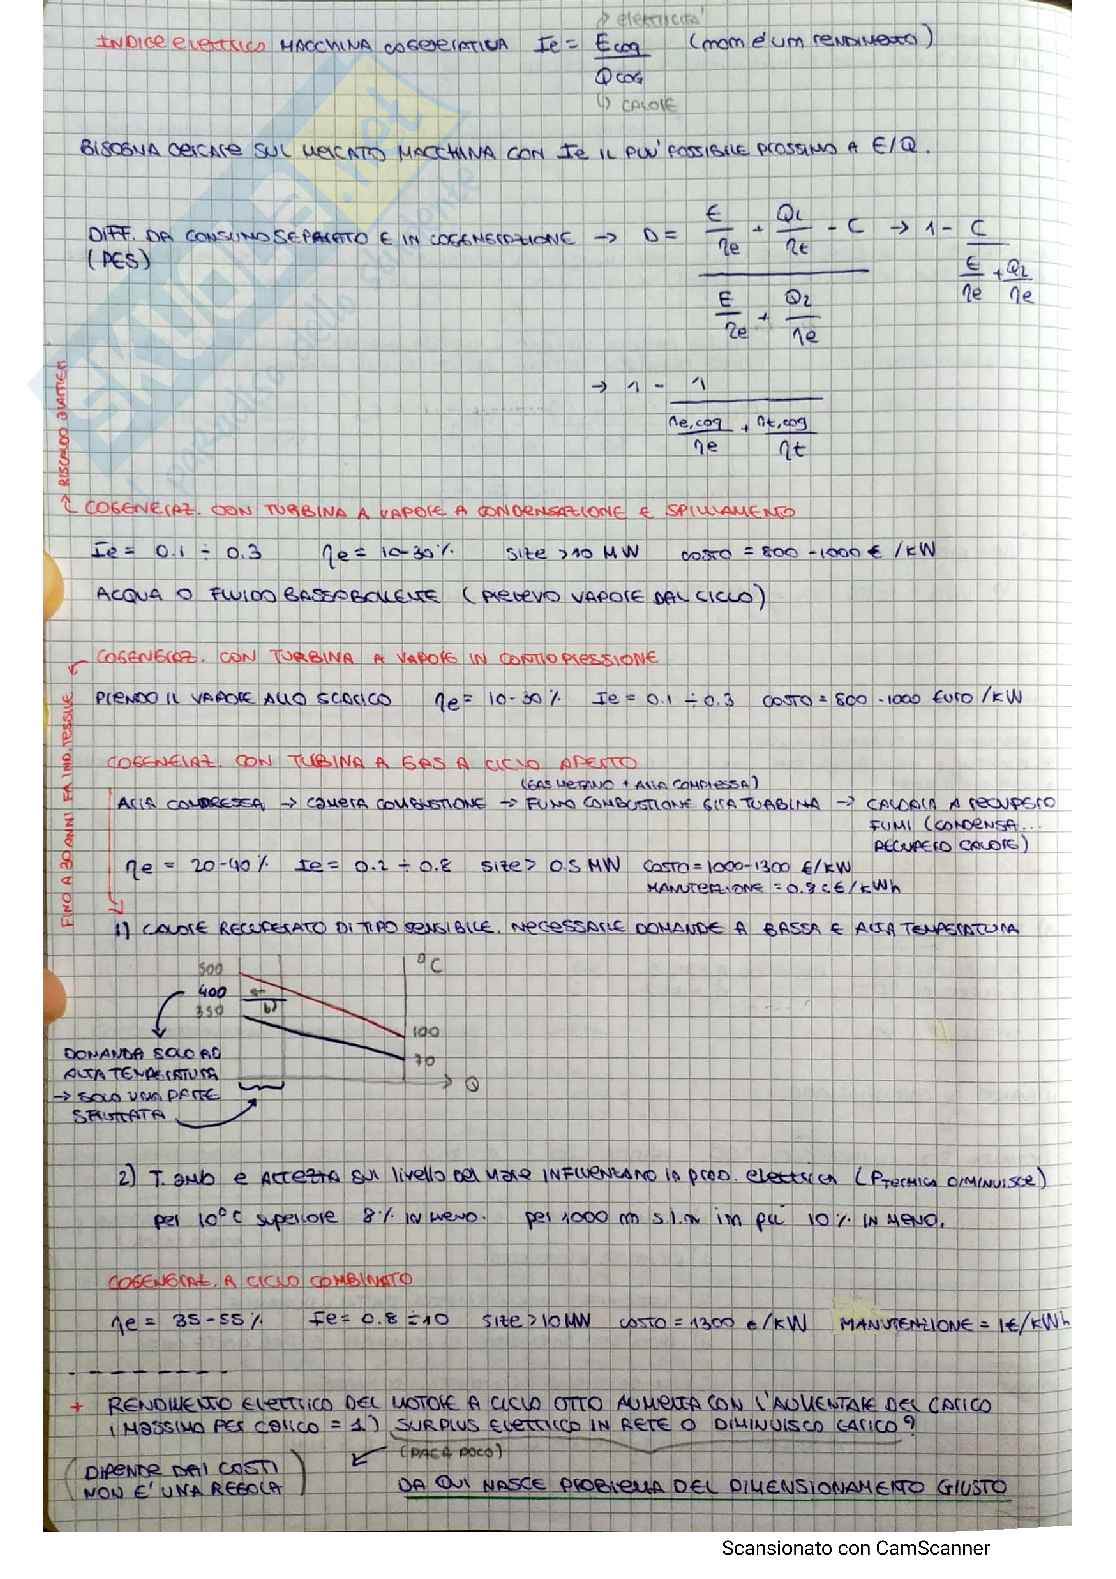 ↱ elettricità
INDICE elettrico MACCHINA COGENERATIVA Ie = Ecog / Qcog (non è un rendimento)
↳ CALORE
BISOGNA cercare SUL MERCATO MACCHINA CON Ie IL PIU' POSSIBILE PROSSIMO A E/Q.
DIFF. DA CONSUMO SEPARATO E IN COGENERAZIONE → D = (E/ηe + Q2/ηt - C) / (E/ηe + Q2/ηe) → 1 - C / (E/ηe + Q2/ηe)
(PES)
→ 1 - 1 / (ηe,cog/ηe + ηt,cog/ηt)
COGENERAZ. CON TURBINA A VAPORE A CONDENSAZIONE E SPILLAMENTO
Ie = 0.1 ÷ 0.3 ηe = 10-30% size >10 MW costo = 800 - 1000 € /KW
ACQUA O FLUIDO BASSOBOLLENTE (PRELEVO VAPORE DAL CICLO)
COGENERAZ. CON TURBINA A VAPORE IN CONTROPRESSIONE
PRENDO IL VAPORE ALLO SCARICO ηe = 10-30% Ie = 0.1 ÷ 0.3 COSTO = 800 - 1000 EURO /KW
FINO A 30 ANNI FA IND. TESSILE
COGENERAZ. CON TURBINA A GAS A CICLO APERTO
(GAS METANO + ARIA COMPRESSA)
ARIA COMPRESSA → CAMERA COMBUSTIONE → FUMO COMBUSTIONE GIRA TURBINA → CALDAIA A RECUPERO
FUMI (CONDENSA...
RECUPERO CALORE)
ηe = 20-40% Ie = 0.2 ÷ 0.8 size > 0.5 MW COSTO = 1000-1300 €/KW
MANUTENZIONE = 0.8 c€/KWh
1) CALORE RECUPERATO DI TIPO SENSIBILE. NECESSARIE DOMANDE A BASSA E ALTA TEMPERATURA
500
°C
400
350
100
70
Q
DOMANDA SOLO AD
ALTA TEMPERATURA
→ SOLO UNA PARTE
SFRUTTATA
2) T. amb e ALTEZZA SUL livello del mare INFLUENZANO la prod. elettrica (P TERMICA DIMINUISCE)
per 10°C superiore 8% IN MENO. per 1000 m s.l.m in più 10% IN MENO.
COGENERAZ. A CICLO COMBINATO
ηe = 35-55% Ie = 0.8 ÷ 10 size > 10 MW COSTO = 1300 €/KW MANUTENZIONE = 1€/KWh
+ RENDIMENTO ELETTRICO DEL MOTORE A CICLO OTTO AUMENTA CON L'AUMENTARE DEL CARICO
(MASSIMO PER CARICO = 1) SURPLUS ELETTRICO IN RETE O DIMINUISCO CARICO?
(PAGA POCO)
(DIPENDE DAI COSTI
NON E' UNA REGOLA)
DA QUI NASCE PROBLEMA DEL DIMENSIONAMENTO GIUSTO
SKUOLA.net
Scansionato con CamScanner